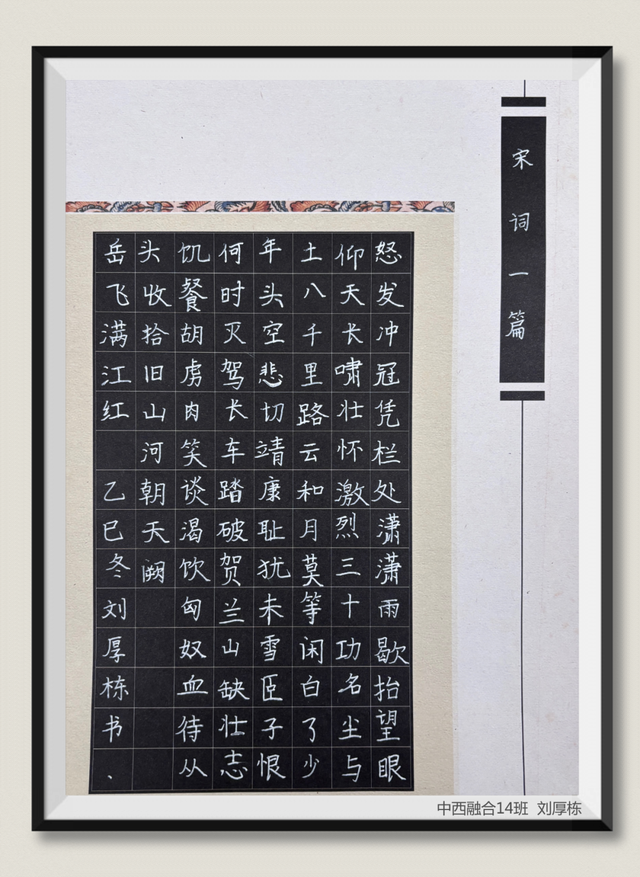 宋词一篇
怒发冲冠凭栏处潇潇雨歇抬望眼
仰天长啸壮怀激烈三十功名尘与
土八千里路云和月莫等闲白了少
年头空悲切靖康耻犹未雪臣子恨
何时灭驾长车踏破贺兰山缺壮志
饥餐胡虏肉笑谈渴饮匈奴血待从
头收拾旧山河朝天阙
岳飞满江红 乙巳冬刘厚栋书、
中西融合14班 刘厚栋